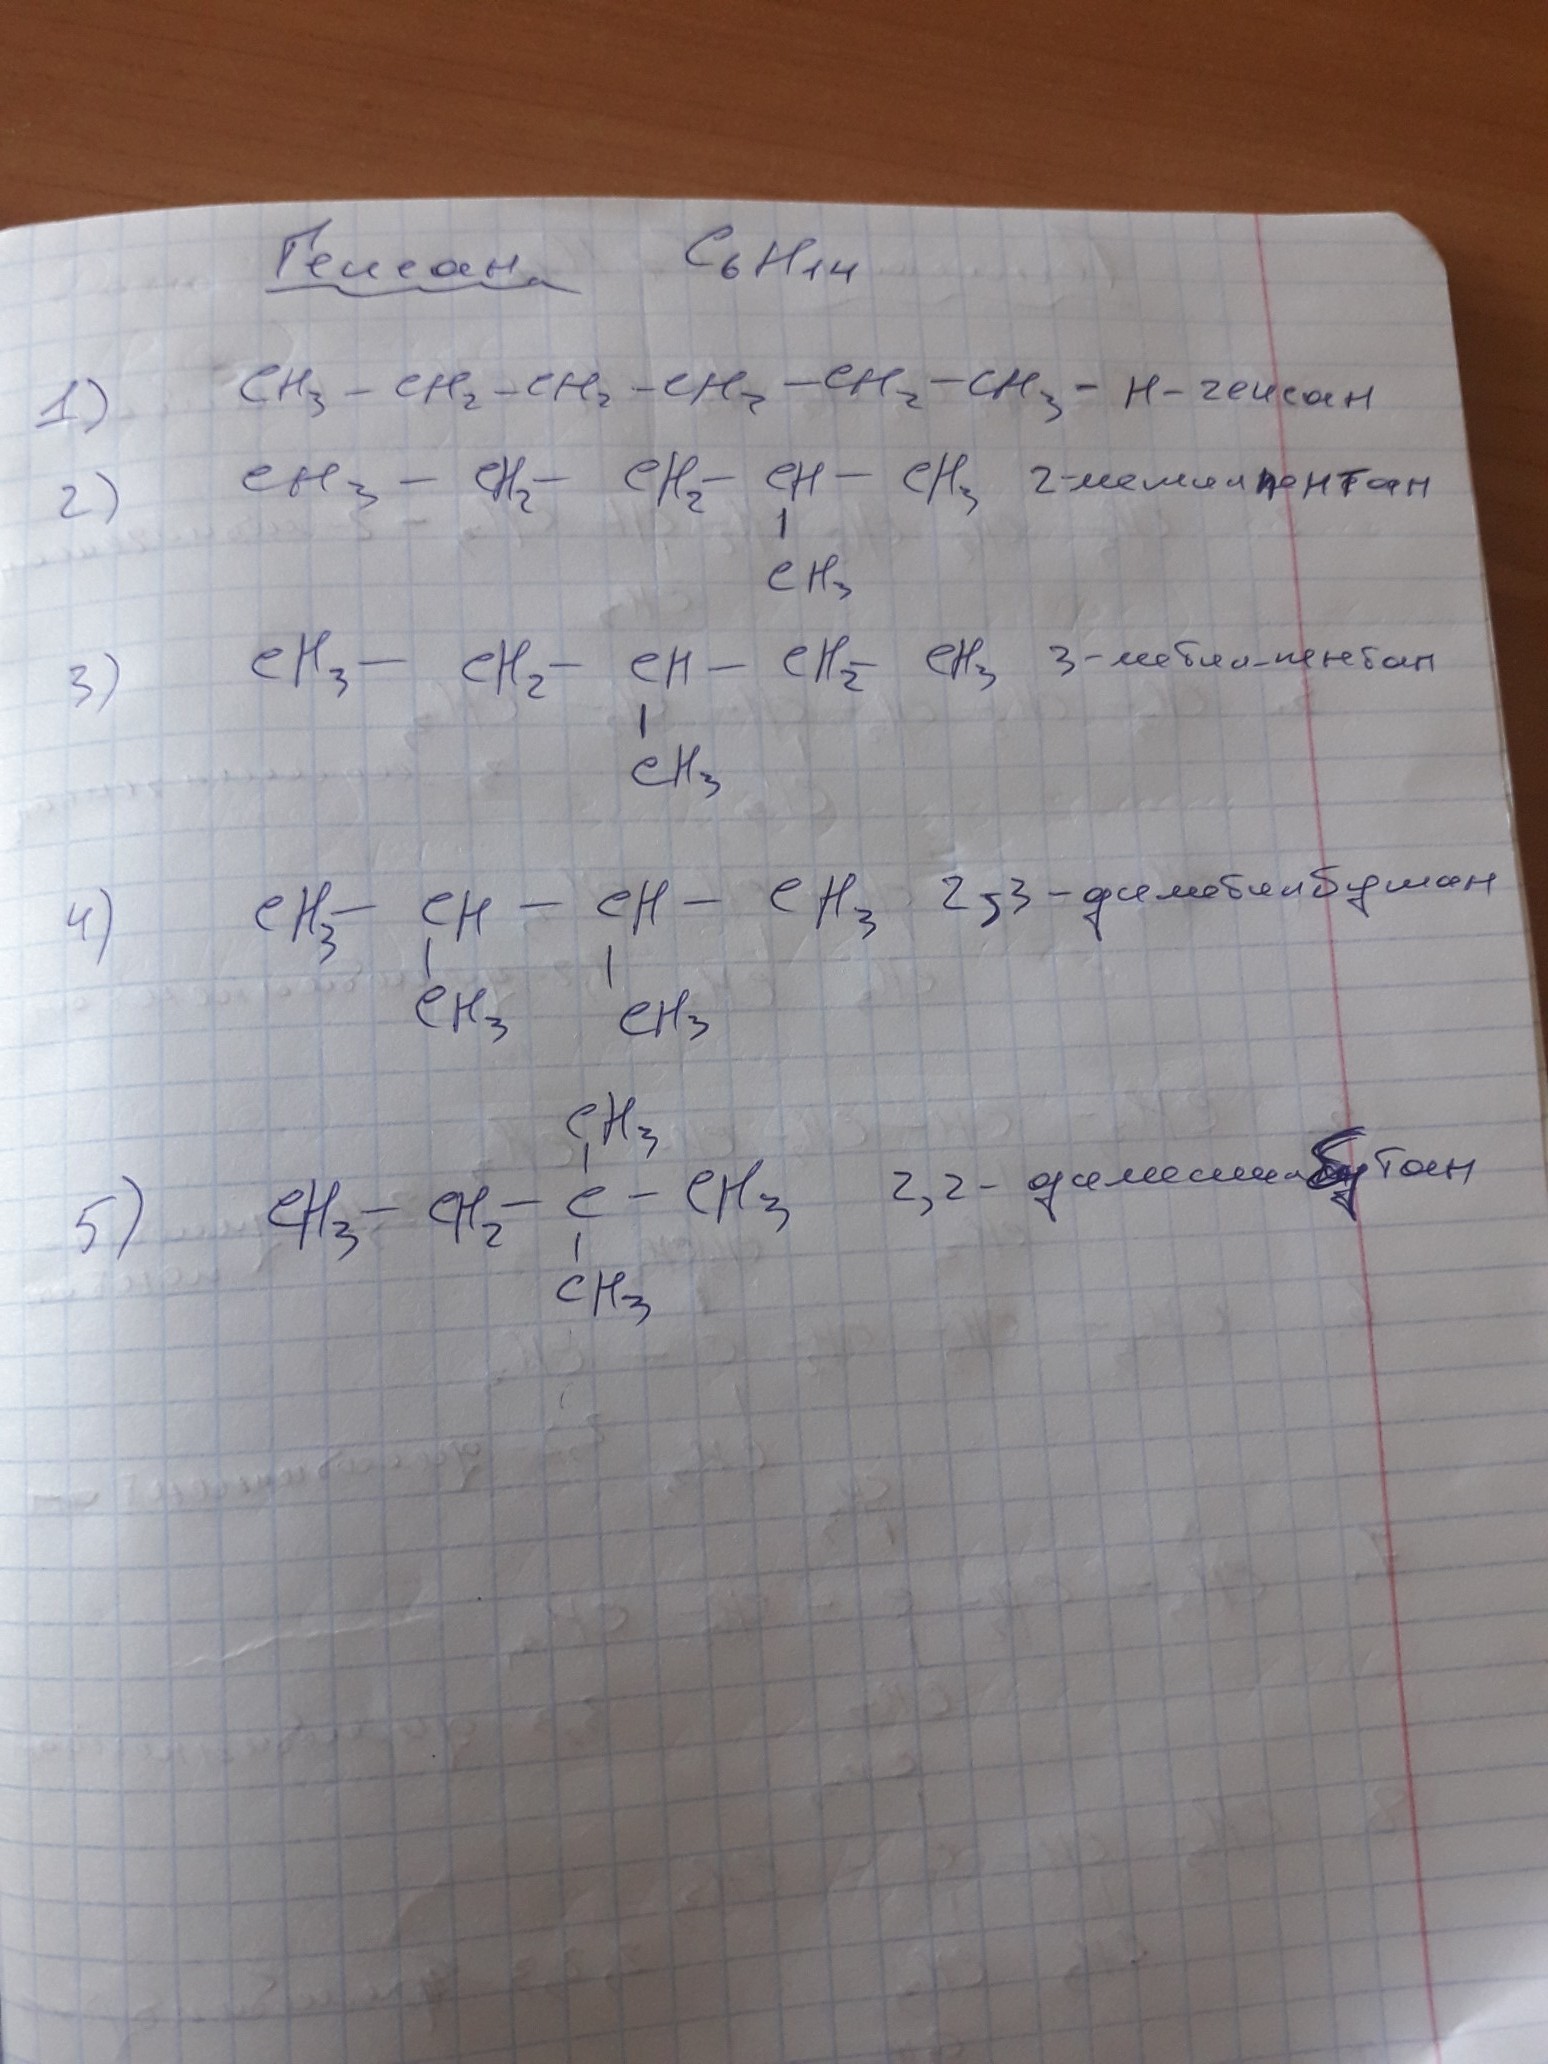 Гексан C₆H₁₄
1) CH₃ – CH₂ – CH₂ – CH₂ – CH₂ – CH₃ – н-гексан
2) CH₃ – CH₂ – CH₂ – CH – CH₃ 2-метилпентан
|
CH₃
3) CH₃ – CH₂ – CH – CH₂ – CH₃ 3-метил-пентан
|
CH₃
4) CH₃ – CH – CH – CH₃ 2,3-диметилбутан
| |
CH₃ CH₃
CH₃
|
5) CH₃ – CH₂ – C – CH₃ 2,2-диметилбутан
|
CH₃